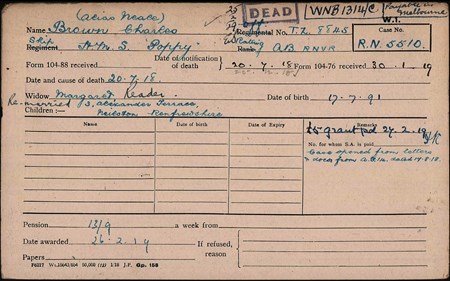 (alias Neale)
DEAD
WNB1314/C
Payable in Melbourne
W.I.
Name Brown Charles
Regimental No. T.Z. 8845
Case No.
R.N. 5510.
Ship
Regiment H.M.S. Poppy
Rank or Rating A.B. RNVR
Form 104-88 received
Date of notification of death 20-7-18
Form 104-76 received 30-1-19
Date and cause of death 20-7-18.
Widow Margaret Reader
Date of birth 17-7-91
Re-married 3, Alexander Terrace,
Children: Neilston Renfrewshire
Name
Date of Birth
Date of Expiry
£5 grant pd 27-2-19
No. for whom S.A. is paid
Case opened from letters
& docs from dated 17-8-18.
Pension 13/9 a week from
Date awarded 26-2-19
If refused, reason
Papers
Gp. 158